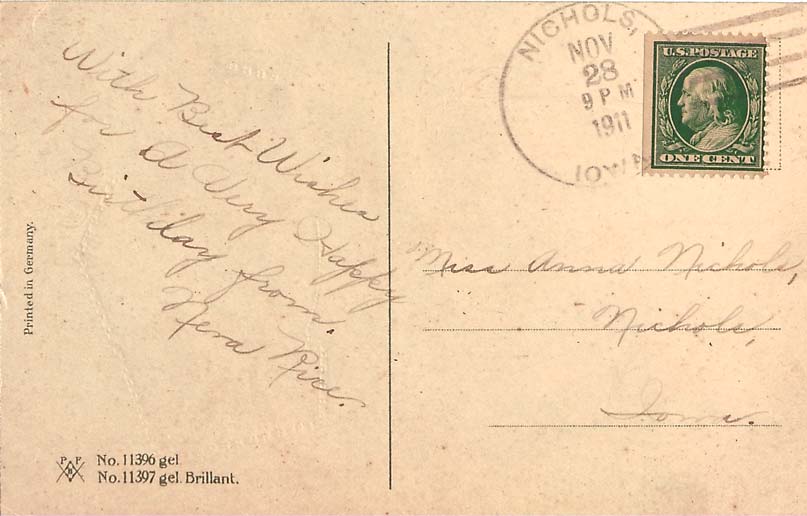 With Best Wishes
for a Very Happy
Birthday from
Nera Rice.
Printed in Germany.
P F
B
No. 11396 gel
No. 11397 gel. Brillant.
NICHOLS,
NOV
28
9 PM
1911
IOWA
U.S. POSTAGE
ONE CENT
Miss Anna Nichols,
Nichols,
Iowa.